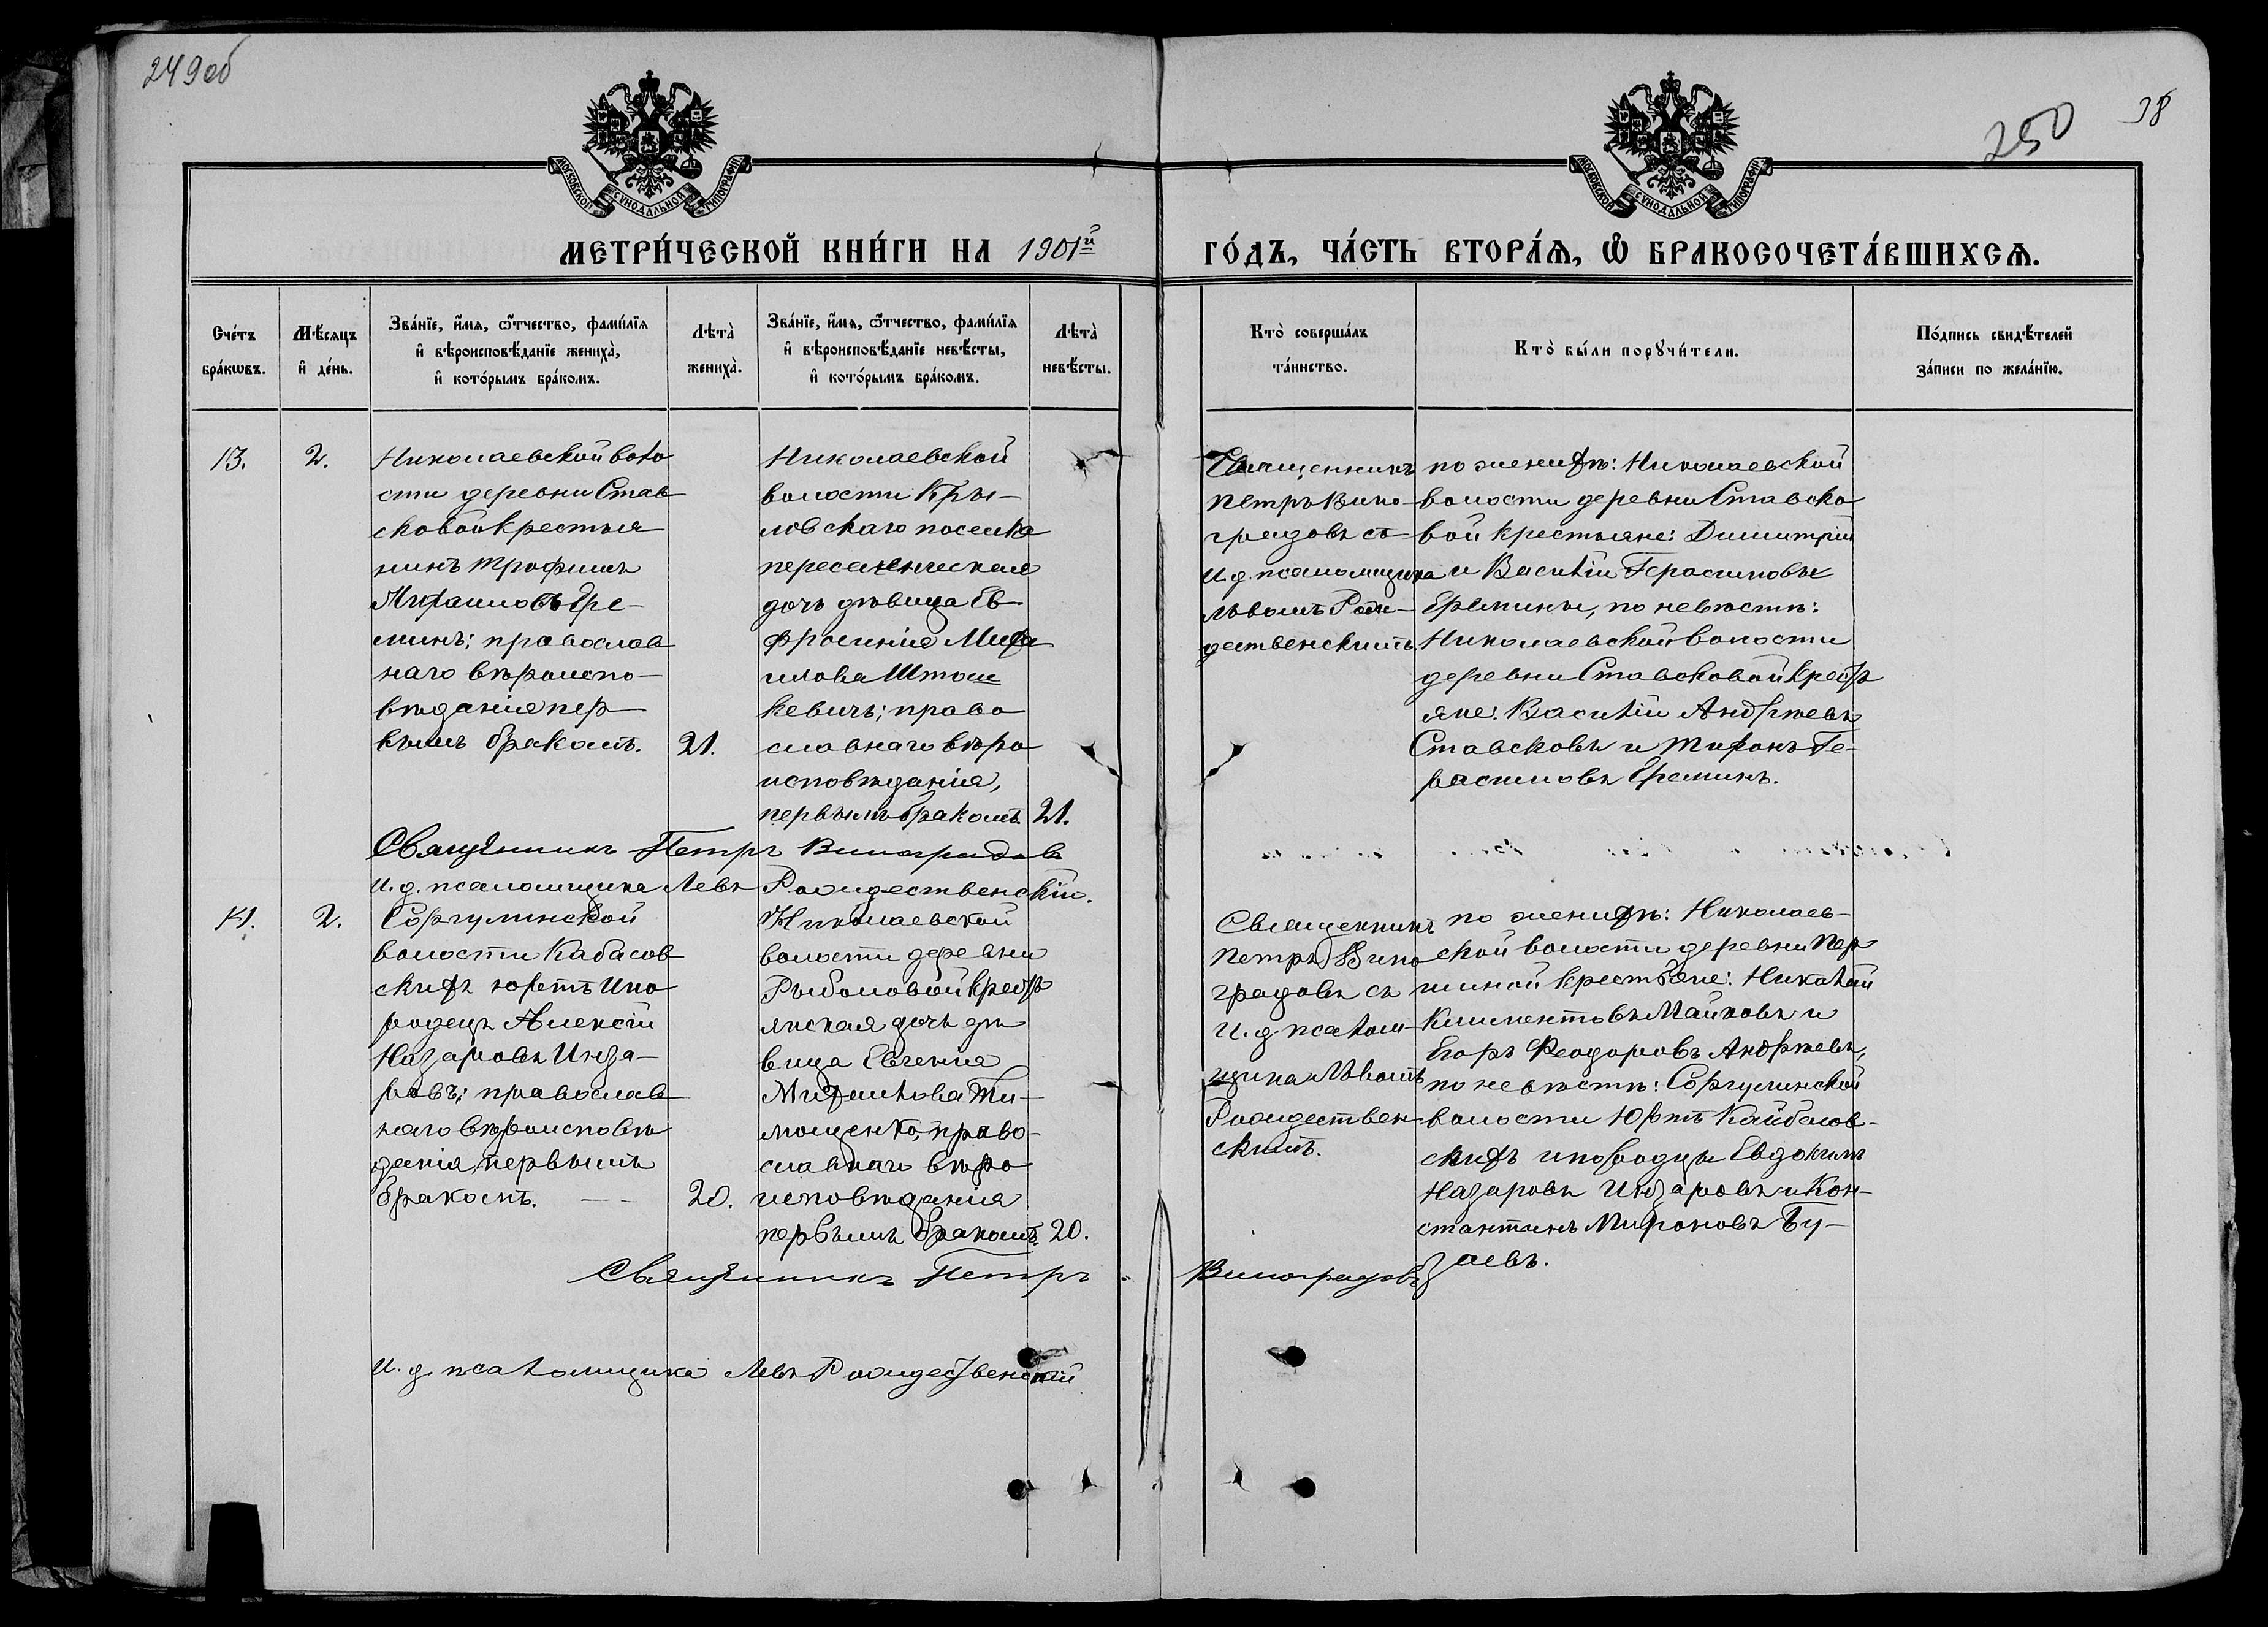 249об
250
38
МОСКОВСКОЙ СѴНОДАЛЬНОЙ ТИПОГРАФІИ
МОСКОВСКОЙ СѴНОДАЛЬНОЙ ТИПОГРАФІИ
МЕТРИ́ЧЕСКОЙ КНИ́ГИ НА 1901й ГО́ДЪ, ЧА́СТЬ ВТОРА́Ѧ, Ѽ БРАКОСОЧЕТА́ВШИХСѦ.
Сче́тъ
бра́кѡвъ.
Мѣ́сѧцъ
и҆ де́нь.
Зва́нїе, и҆́мѧ, ѻ҆́тчество, фами́лїѧ
и҆ вѣроисповѣ́данїе жениха̀,
и҆ кото́рымъ бра́комъ.
Лѣта̀
жениха̀.
Зва́нїе, и҆́мѧ, ѻ҆́тчество, фами́лїѧ
и҆ вѣроисповѣ́данїе невѣ́сты,
и҆ кото́рымъ бра́комъ.
Лѣта̀
невѣ́сты.
Кто̀ соверша́лъ
та́инство.
Кто̀ бы́ли порꙋчи́тели.
По́дпись свидѣ́телей
за́писи по жела́нїю.
13.
2.
Николаевской воло
сти деревни Став
сковой крестья
нинъ Трофимъ
Михаиловъ Ере-
минъ; православ
наго вѣроиспо-
вѣданія пер
вымъ бракомъ.
21.
Николаевской
волости Кры-
ловскаго поселка
переселенческая
дочь дѣвица Ев
фросинія Миха
илова Шташ
кевичъ; право
славнаго вѣро
исповѣданія,
первымъ бракомъ.
21.
Священникъ
Петръ Вино-
градовъ съ
И. д. псаломщика
Львомъ Рож-
дественскимъ.
по женихѣ: Николаевской
волости деревни Ставско
вой крестьяне: Димитрій
и Василій Герасимовы
Еремины, по невѣстѣ:
Николаевской волости
деревни Ставсковой крестъ
яне: Василій Андреевъ
Ставсковъ и Тихонъ Ге-
расимовъ Ереминъ.
Священникъ Петръ Виноградовъ
И. д. псаломщика Левъ Рождественскій.
14.
2.
Соргулинской
волости Кабасов
скихъ юртъ Ино
родецъ Алексій
Назаровъ Инза-
ровъ; православ
наго вѣроисповѣ
данія, первымъ
бракомъ.
20.
Николаевской
волости деревни
Рыболовой крестъ
янская дочь дѣ
вица Евгенія
Михаилова Ти-
мощенко, право-
славнаго вѣро
исповѣданія
первымъ бракомъ.
20.
Священникъ
Петръ Вино
градовъ съ
И. д. псалом-
щика Львомъ
Рождествен-
скимъ.
по женихѣ: Николаев-
ской волости деревни Пер
шиной крестьяне: Николай
Климентовъ Майковъ и
Егоръ Феодоровъ Андреевъ,
по невѣстѣ: Соргулинской
волости Юртъ Кайбасов-
скихъ инородцы Евдокимъ
Назаровъ Инзаровъ и Кон-
стантинъ Мироновъ Бу-
заевъ.
Священникъ Петръ Виноградовъ
И. д. псаломщика Левъ Рождественскій